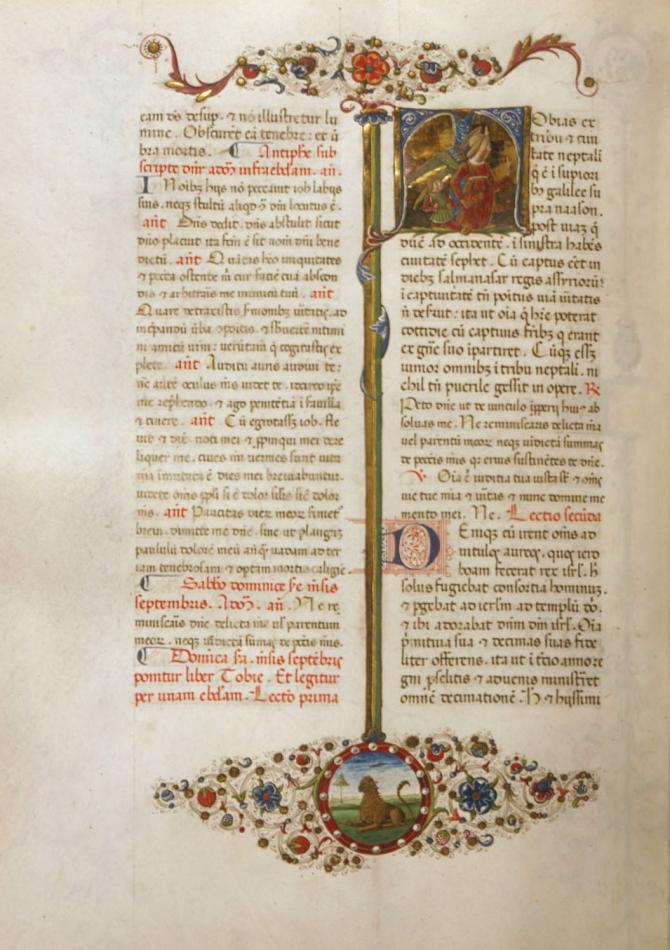 eam ds desup. et nō illustretur lu
mine. Obscurēt eā tenebre: et ū
bra mortis. Antiphe sub
scripte dnr adoꝫ infra ebdam. an.
In oībꝫ hijs nō peccavit iob labijs
suis. neqꝫ stultū aliqd ꝯ dm locutus ē.
ant Dns dedit. dns abstulit sicut
dno placuit ita fcm ē sit nom dni bene
dictū. ant Quātas hēo iniquitates
et pccta ostende m cur facie tuā abscon
dis et arbitraris me inimicū tuū. ant
Quare detraxistis smoībꝫ vitatis. ad
īcpandū vba
plete. ant Auditu auris audivi te:
nc autē oculus ms videt te. idcirco ipe
me rephendo. et ago penitētiā ī favilla
et cinere. ant Cū egrotass iob. fle
vit et dix. noti mei et ꝓpinqui mei dere
liquer me. cutis m vermes sunt
dies mei breviabuntur.
videte oms ppli si ē dolor silis sic dolor
ms. ant Paucitas dierꝫ meorꝫ finiet
brevi. dimitte me dne. sine ut plangā
paululū dolorē meū anq vadam ad ter
ram tenebrosam et optam mortis caligie.
Sabbo dominice pe msis
septembris. Adoꝫ. an. Ne re
miniscaris dne delicta mea vl parentum
meorꝫ. neqꝫ vīdictā sumas de pccis mis.
Domica pa. msis septēbris
ponitur liber Tobie. Et legitur
per unam ebdam. Lectio prima
Tobias ex
tribu et civi
tate neptali
q ē ī supiori
bꝫ galilee su
pra naason.
post viaꝫ q
duc ad occidentē. ī sinistra habēs
civitatē sephet. Cū captus eēt in
diebꝫ salmanasar regis assyrioꝝ:
ī captivitate tn positus viā vitatis
n deseruit: ita ut oīa q hrē poterat
cottidie cū captivis fribꝫ q erant
ex gñe suo ipartiret. Cūqꝫ ess
iunior omnibꝫ ī tribu neptali. ni
chil tn puerile gessit in opere. R
Peto dne ut de vinculo ipperij huiꝰ ab
solvas me. Ne reminiscaris delicta mea
vel parentū meorꝫ neqꝫ vīdictā sumas
de pccis mis qr eruis sustinētes te dne.
V. Oīa ē iudicia tua iusta st et oms
vie tue mia et vitas et nunc domine me
mento mei. Ne. Lectio secūda
Deniqꝫ cū irent oms ad
vitulos aureos. quos iero
boam fecerat rex isrl. h
solus fugiebat consortia hominuꝫ.
et pgebat ad ierlm ad templū dn.
et ibi adorabat dnm dm isrl. Oīa
pmitiva sua et decimas suas fide
liter offerens. ita ut ī tcio anno re
gni pselitis et advenis ministret
omnē decimationē. Hec et hijs simi